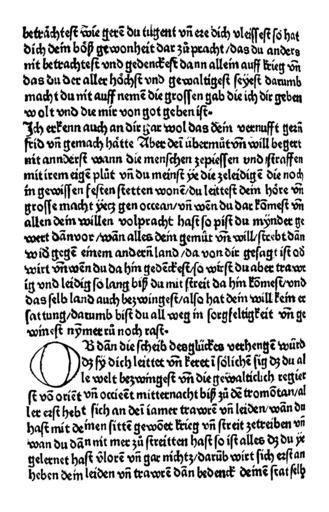 betrachtest wie gerē du tugent vn̄ ere dich vleissest so hat
dich dein böß gewonheit dar zů pracht / das du anders
nit betrachtest vnd gedenckest dann allein auff krieg vn̄
das du der aller höchst vnd gewaltigest seyest darumb
macht du nit auff nemē die grossen gab die ich dir geben
wolt vnd die mir von got geben ist·
Ich erkenn auch an dir gar wol das dein vernufft gern̄
frid vn̄ gemach hatte Aber deī übermůt vn̄ will begert
nit annderst wann die menschen zepiessen vnd straffen
mit irem eigē plůt vn̄ du meinst ye die zeleidigē die noch
in gewissen festen stetten wonē / du leittest deim höre vn̄
grosse macht yecz gen occean / vn̄ wen̄ du dar kömest vn̄
allen dein willen volpracht hast so pist du mÿnder ge
wert dan̄ vor / wān alles dein gemüt vn̄ will / strebt dān
wid gegē einem andern̄ land / da von dir gesagt ist oð
wirt vn̄ wen̄ du da hin gedēckest / so wirst du aber traw
ig vnd leidig so lang biß du mit streit da hin kömest / vnd
das selb land auch bezwingest / also hat dein will kein er
sattung / darumb bist du all weg in sorgfeltigkeit vn̄ ge
winest nÿmer rů noch rast·
OB dan̄ die scheib des glückes verhengē würd
dz sÿ dich leittet vn̄ keret ī sölichē sig dz du al
le welt bezwingest vn̄ die gewalticlich regier
st vō oriēt vn̄ occiēt mitternacht biß zů dē tromōtan / al
ler erst hebt sich an dei iamer trawrē vn̄ leiden / wān du
hast mit deinen sitten gewōet krieg vn̄ streit zetreiben vn̄
wan du dān nit mer zů streitten hast so ist alles dz du ye
gelernet hast ṽlorē vn̄ gar nichtz / darūb wirt sich erst an
heben dein leiden vn̄ trawrē dān bedenck deinē stat selb